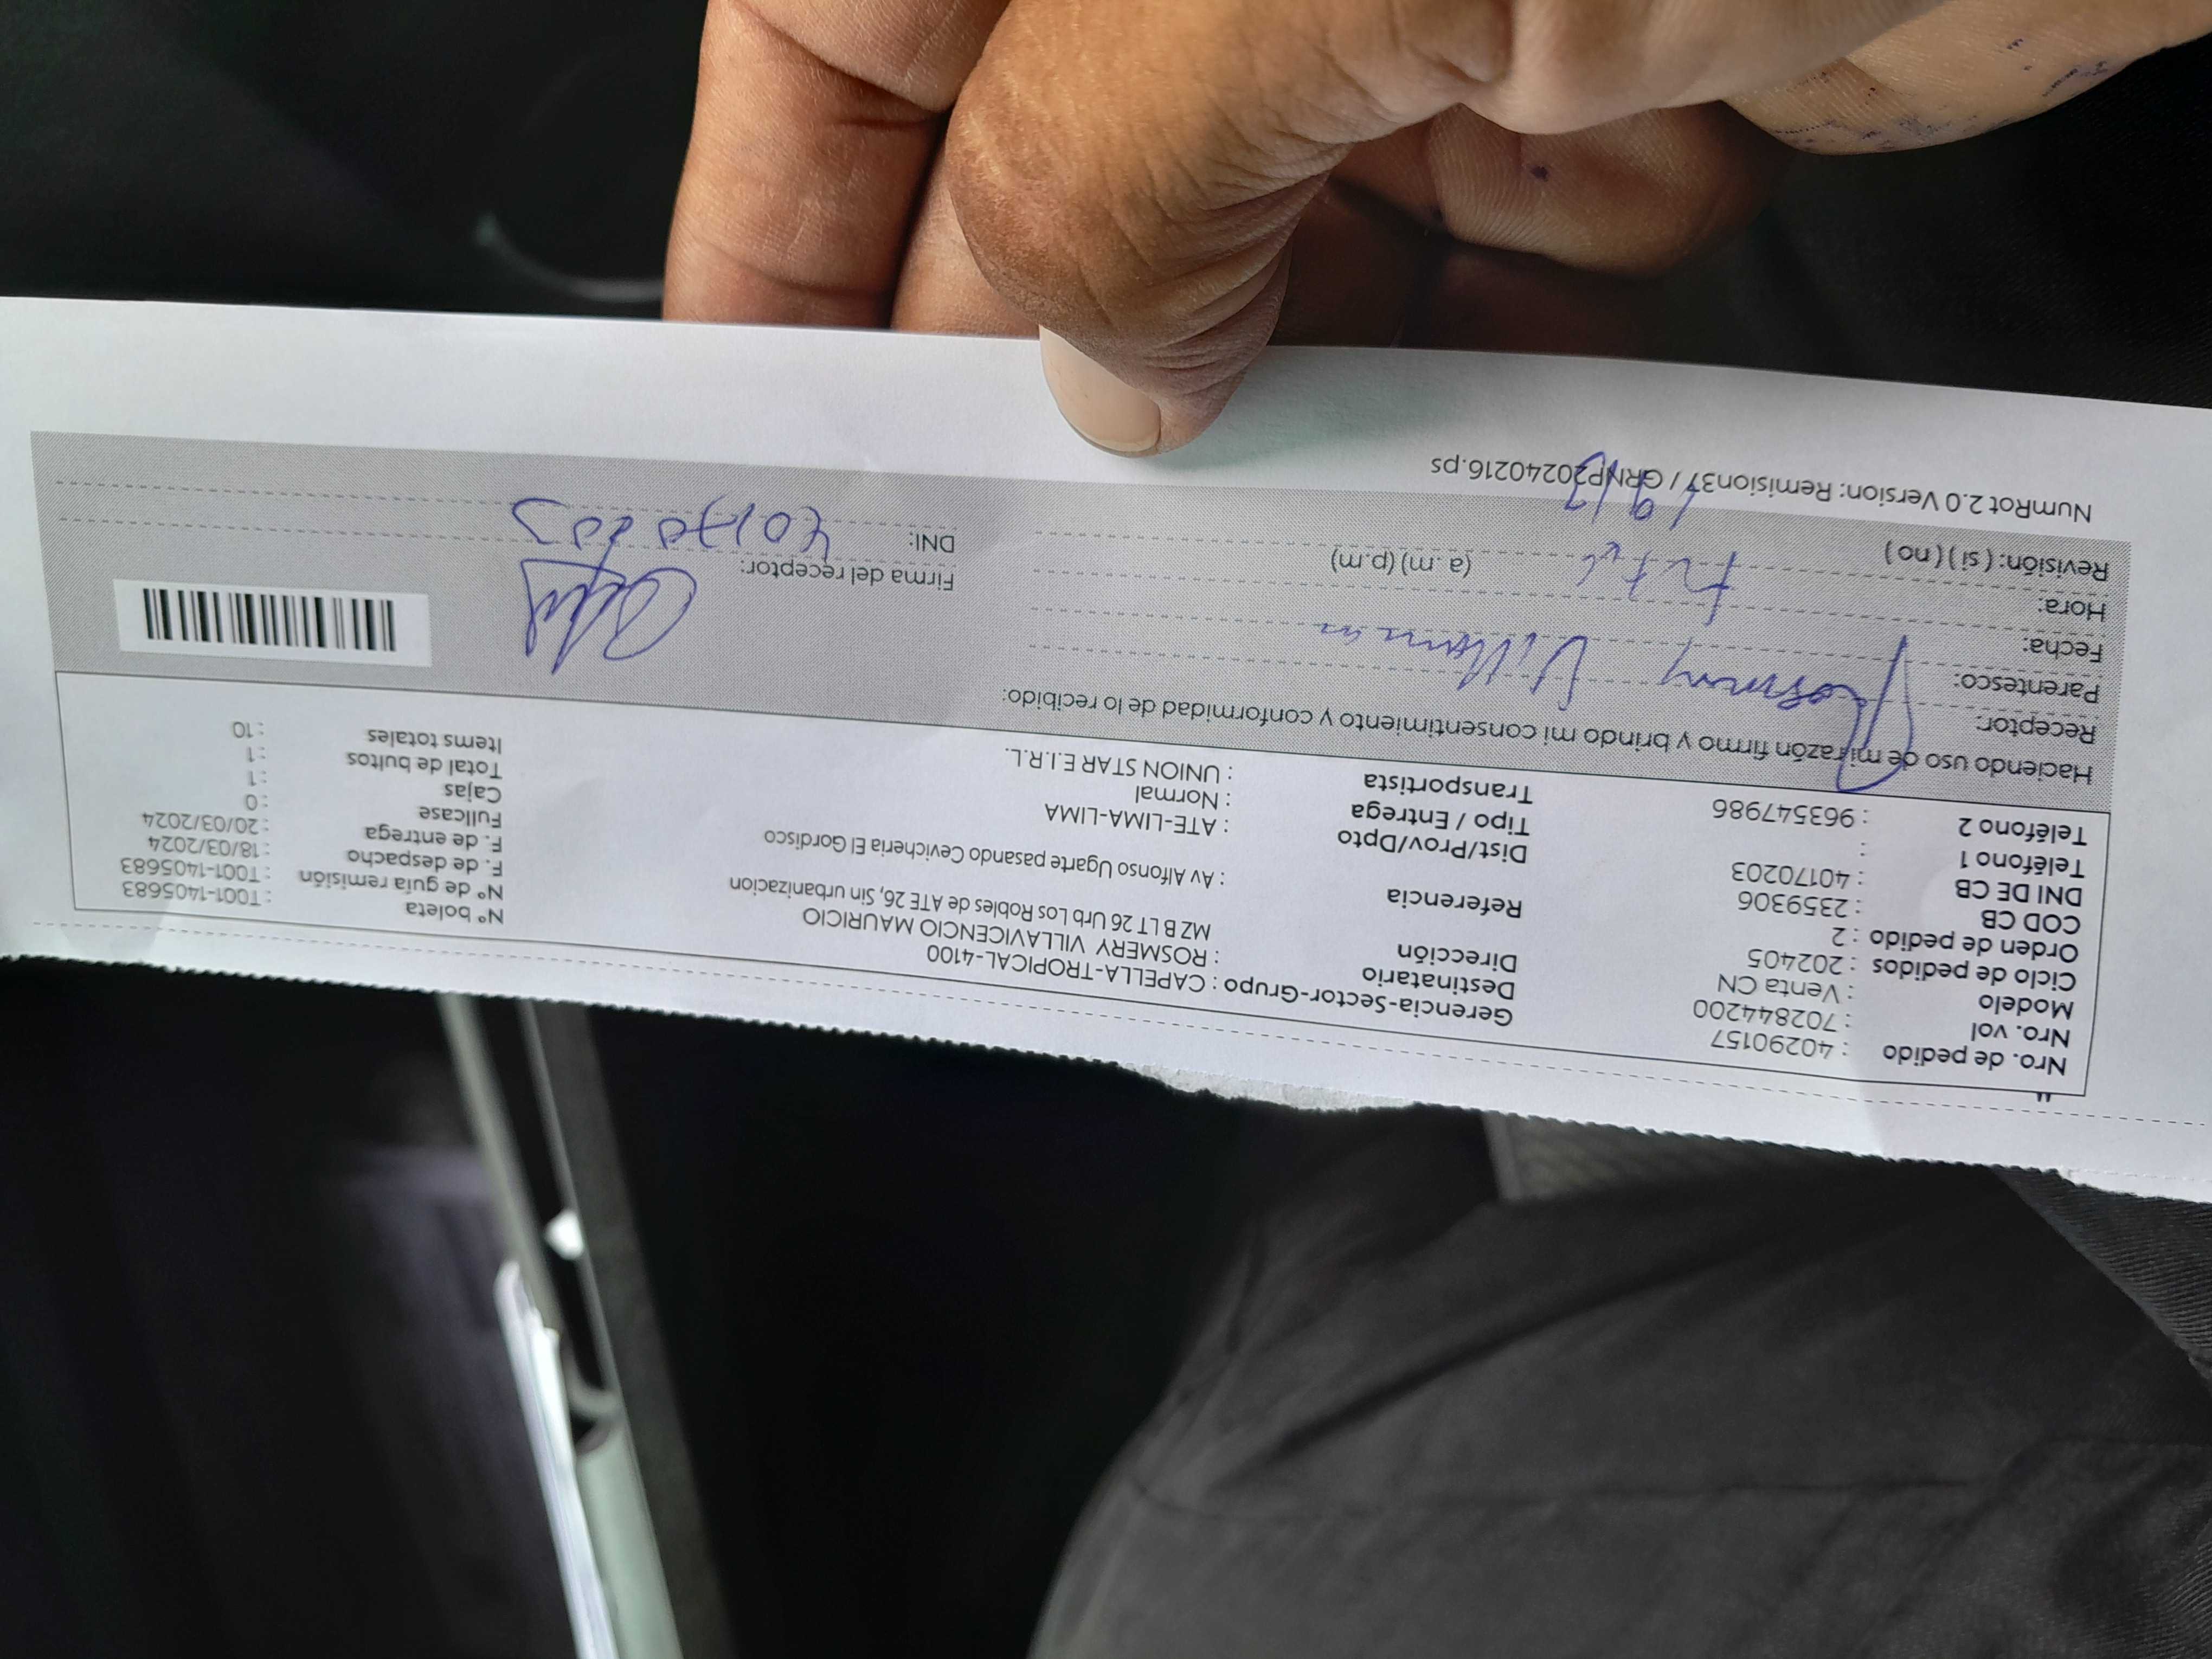 Nro. de pedido : 40290157
Nro. vol : 702844200
Modelo : Venta CN
Ciclo de pedidos : 202405
Orden de pedido : 2
COD CB : 2359306
DNI DE CB : 40170203
Teléfono 1 :
Teléfono 2 : 963547986
Gerencia-Sector-Grupo : CAPELLA-TROPICAL-4100
Destinatario : ROSMERY VILLAVICENCIO MAURICIO
Dirección MZ B LT 26 Urb Los Robles de ATE 26, Sin urbanizacion
Referencia : Av Alfonso Ugarte pasando Cevicheria El Gordisco
Dist/Prov/Dpto : ATE-LIMA-LIMA
Tipo / Entrega : Normal
Transportista : UNION STAR E.I.R.L.
Nº boleta : T001-1405683
Nº de guía remisión : T001-1405683
F. de despacho : 18/03/2024
F. de entrega : 20/03/2024
Fullcase : 0
Cajas : 1
Total de bultos : 1
Items totales : 10
Haciendo uso de mi razón firmo y brindo mi consentimiento y conformidad de lo recibido:
Receptor: Rosmery
Parentesco:
Fecha:
Hora: (a.m) (p.m)
Revisión: ( si ) ( no )
Firma del receptor:
DNI: 40170203
NumRot 2.0 Version: Remision37 / GRNP20240216.ps